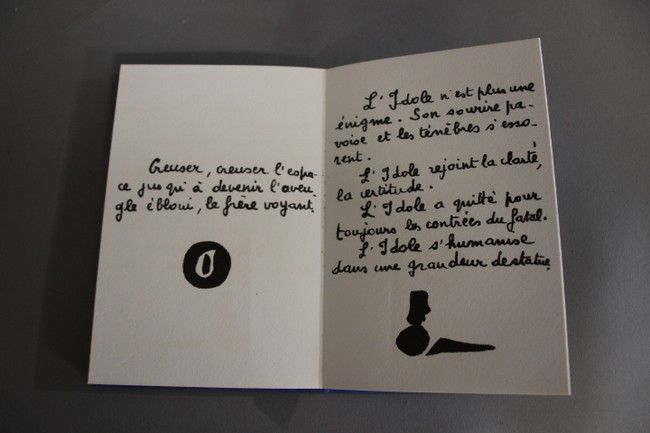 Creuser, creuser l'espa-
ce jusqu'à devenir l'aveu-
gle ébloui, le frère voyant.
L'Idole n'est plus une
énigme. Son sourire pa-
voise et les ténèbres s'esso-
rent.
L'Idole rejoint la clarté,
la certitude.
L'Idole a quitté pour
toujours les contrées du fatal.
L'Idole s'humanise
dans une grandeur de statue.